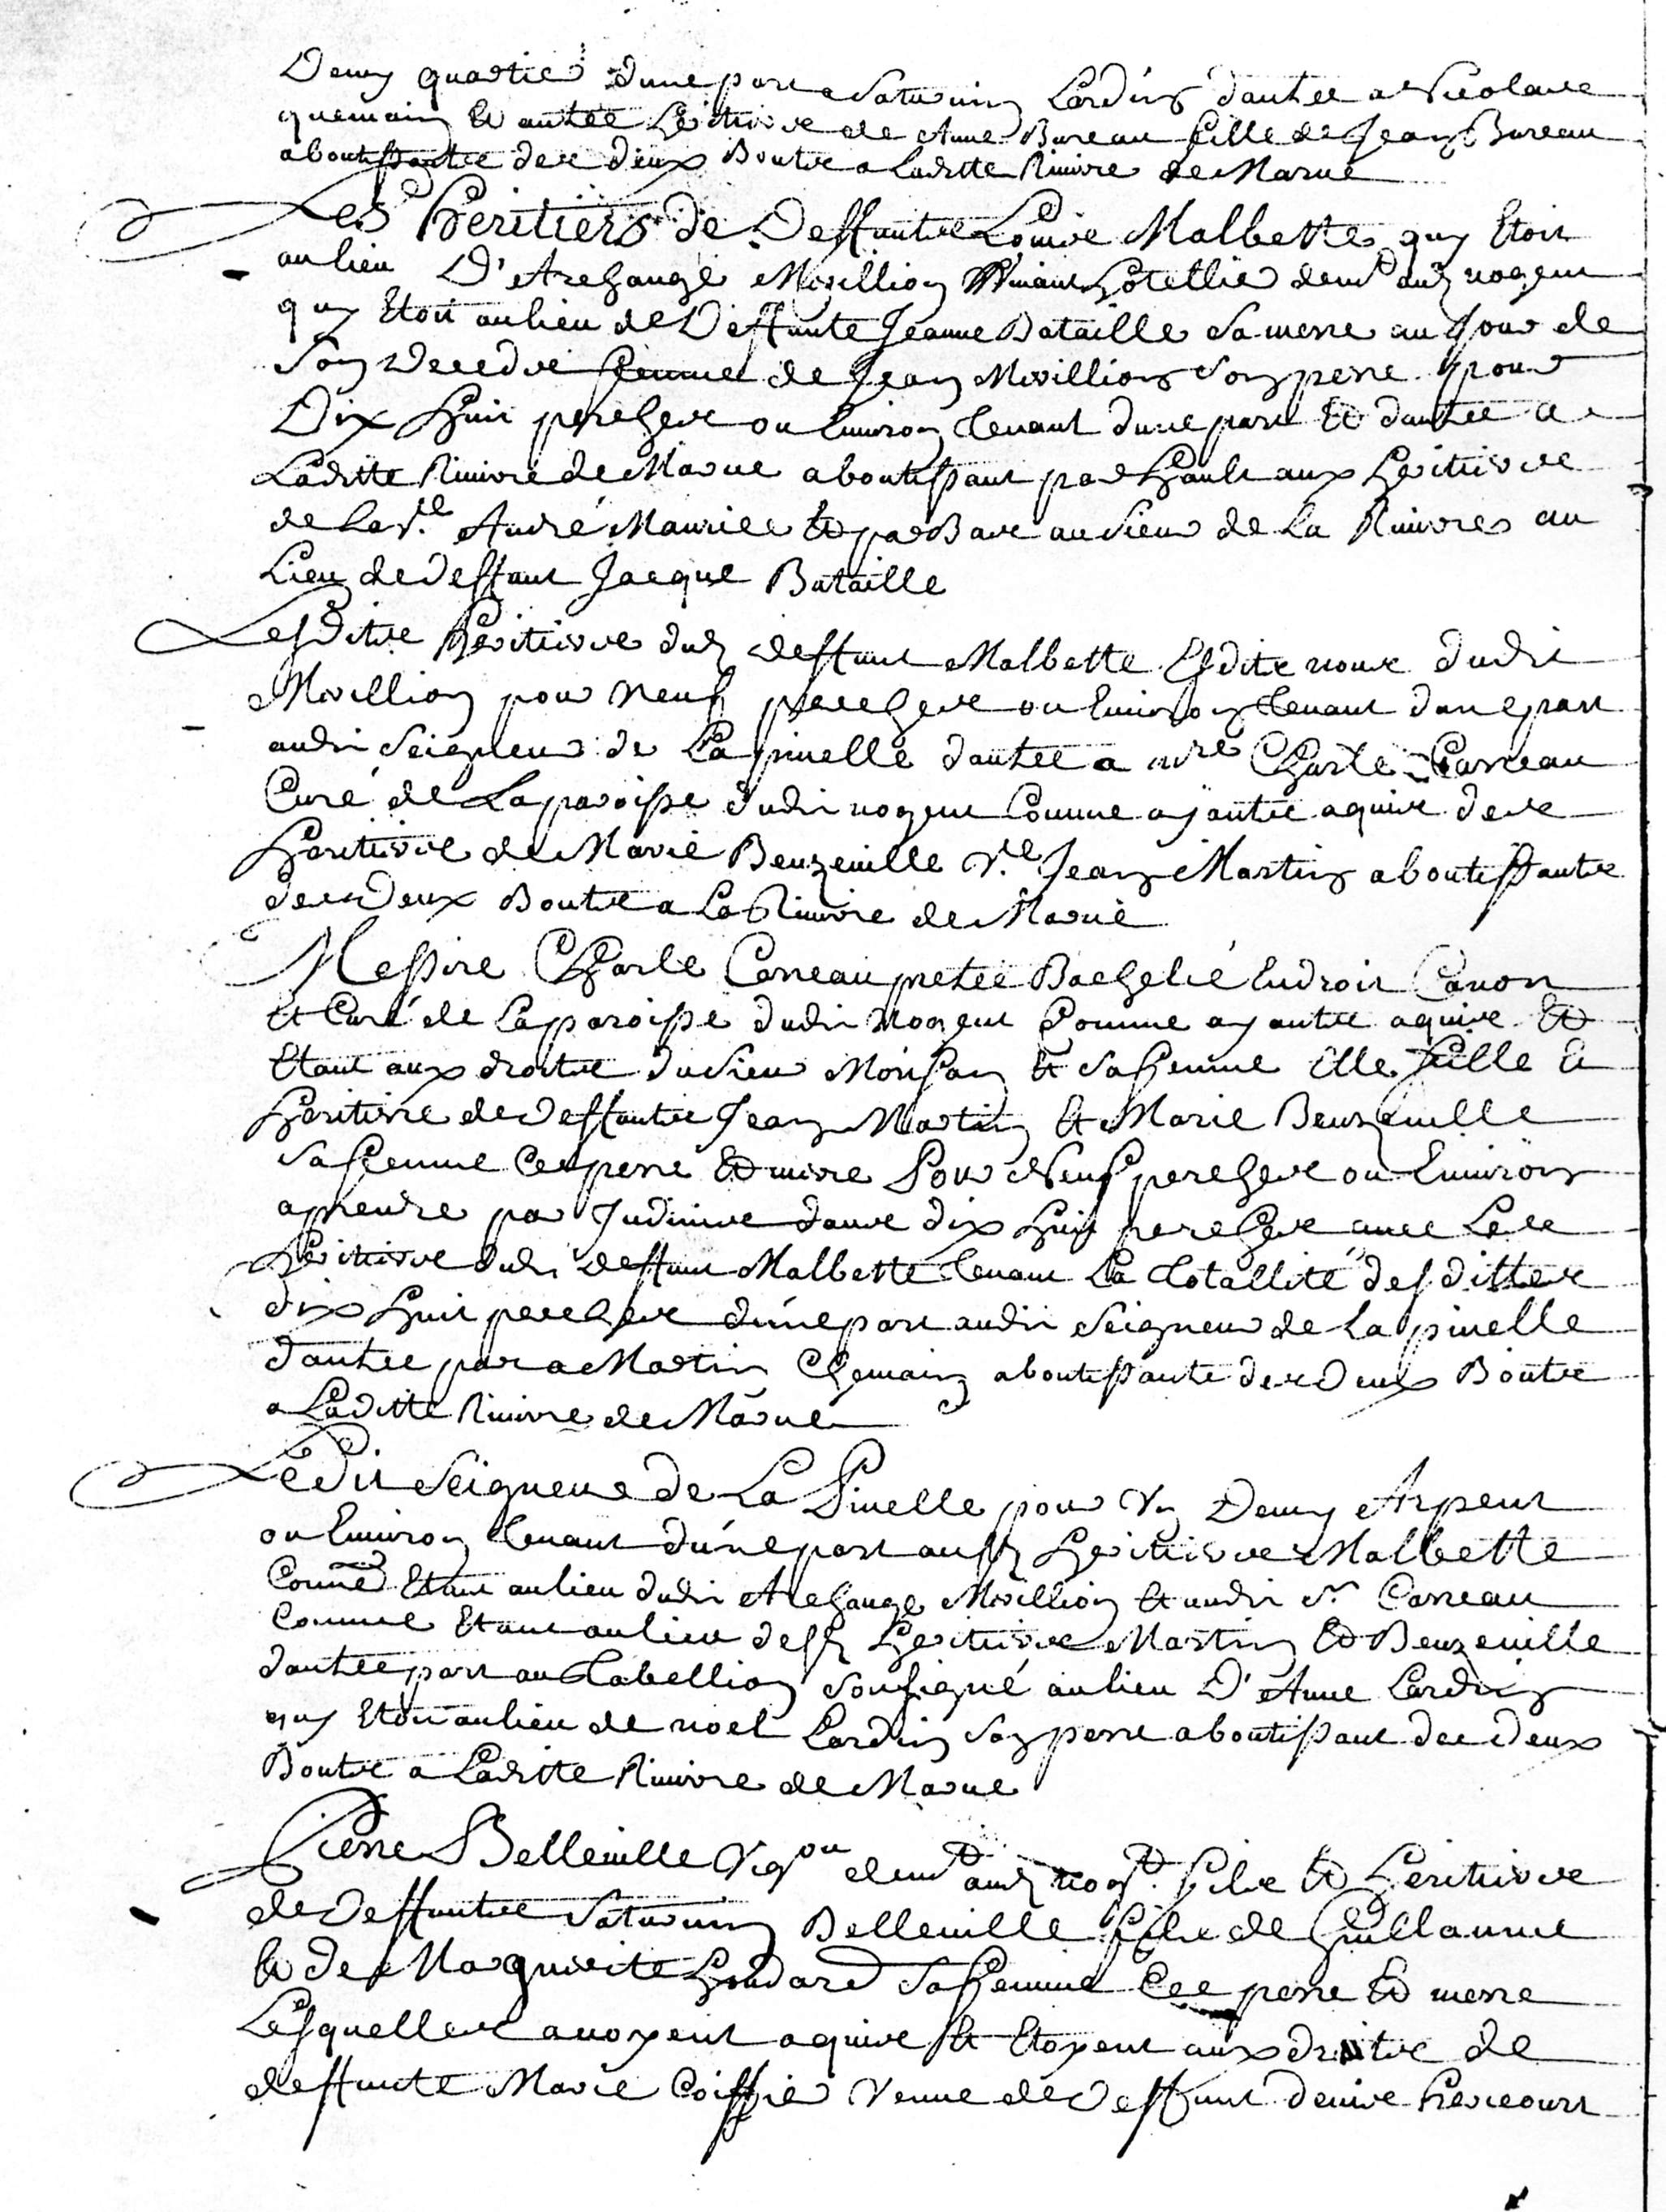 Demy quartier d'une part a Saturnin Lardin d'autre a Nicolas
quemain et autre heritiers de Anne Bureau fille de Jean Bureau
aboutissantes des deux Bouts a Laditte Riuiere de Marne
Les Heritiers de Deffuntes Louise Malbette quy Etoit
au lieu D'Archange Mirillion hotellier demt audt nogent
quy Etoit au lieu de Deffunte Jeanne Bataille sa mere au jour de
son Decedes femme de Jean Mirillion son pere pour
Dix huit perches ou Enuiron tenant d'une part Et d'autre a
Laditte Riuiere de Marne aboutissant par hault aux heritiers
de la Ve. André Maurice Et par Bas au sieur de La Riuiere au
Lieu de deffunt Jacque Bataille
Lesdits Heritiers dudt deffunt Malbette Esdits noms dudit
Mirillion pour neuf perches ou Enuiron tenant d'une part
audit Seigneur de La pinelle d'autre a mre Charle Carreau
Curé de La paroisse dudit nogent Comme ayants aquis des
Heritiers de Marie Beuzeuille Ve. Jean Martin aboutissants
des deux Bouts a La Riuiere de Marne
Messire Charle Carreau pretre Bachelié En droit Canon
et Curé de La paroisse dudit Nogent Comme ayants aquis Et
Etant aux droits du sieur et sa femme Elle fille Et
heritiere de deffunts Jean Martin Et Marie Beuzeuille
sa femme Ces pere Et mere Pour Neuf perches ou Enuiron
a prendre par Indiuis dans dix huit perches auec Les
heritiers dudit deffunt Malbette tenant La totallité desdittes
dix huit perches d'une part audit Seigneur de La pinelle
d'autre par a Martin Chemain aboutissants des deux Bouts
a Laditte Riuiere de Marne
Ledit Seigneur de La Pinelle pour Vn Demy Arpent
ou Enuiron tenant d'une part ausdt heritiers Malbette
Comme Etant au lieu dudit Archange Mirillion Et audit Sr. Carreau
Comme Etant au lieu desdt heritiers Martin Et Beuzeuille
d'autre part au tabellion sousigné au lieu D'Anne Lardin
quy Etoit au lieu de noel Lardin son pere aboutissant des deux
Bouts a Laditte Riuiere de Marne
Pierre Belleuille Vigon demt audt nogt. fils Et heritiers
de Deffunts Saturnin Belleuille fils de Guillaume
Et de Marguerite houdard sa femme Ces pere Et mere
Lesquelles auoyent aquis Et Etoyent aux droits de
deffunte Marie Coiffié Veuue de Deffunt denis